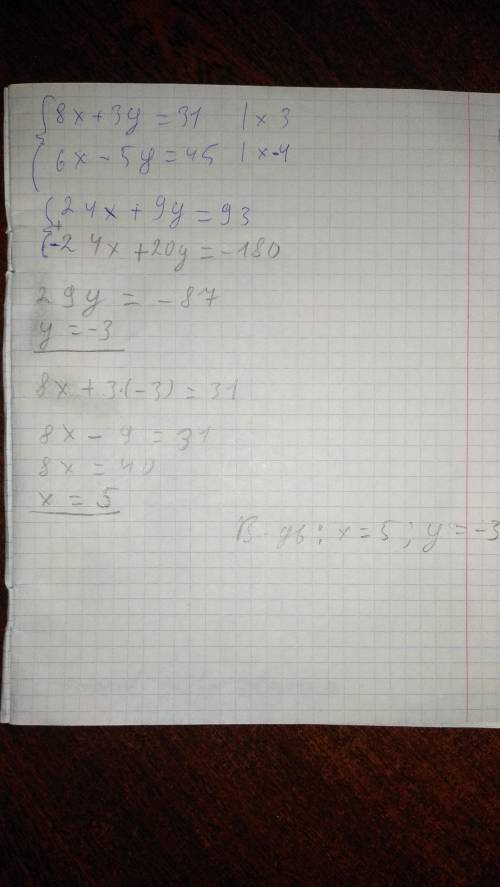 {8x+3y=31 | x 3
{6x-5y=45 | x-4
{24x+9y=93
+
{-24x+20y=-180
29y=-87
y=-3
8x+3·(-3)=31
8x-9=31
8x=40
x=5
В-дь: x=5; y=-3